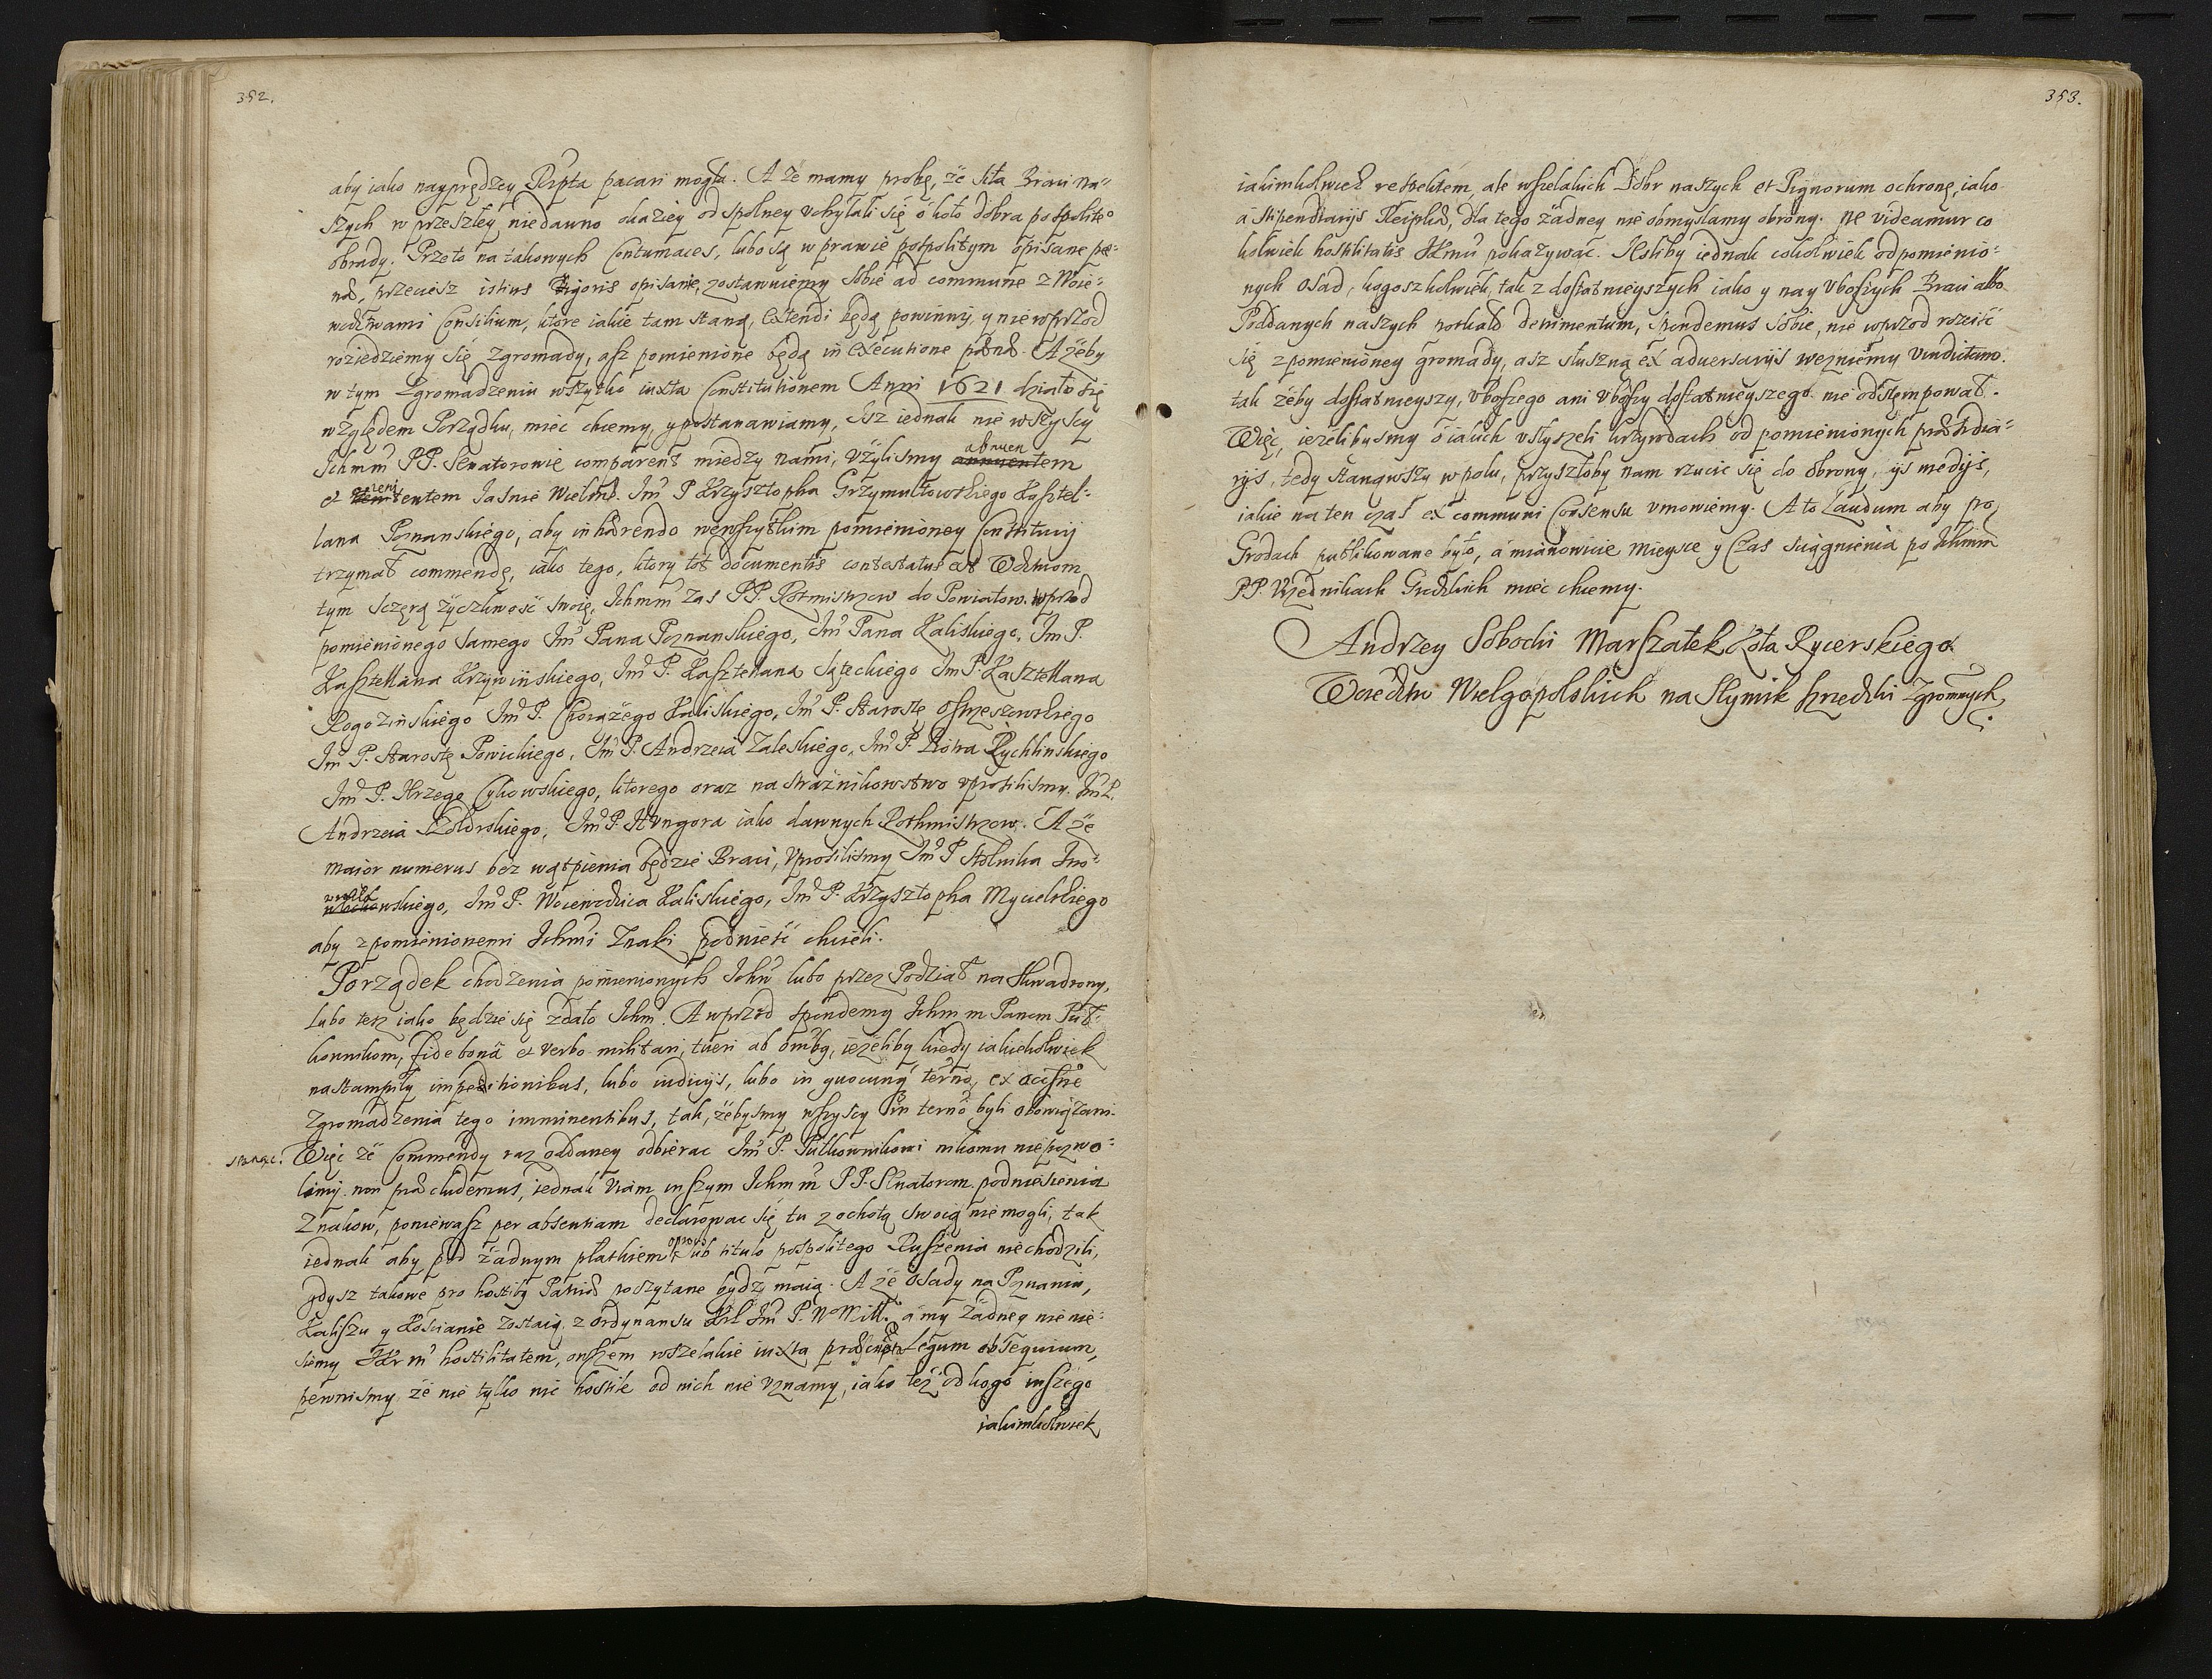 352.
aby iako nayprędzey Rzpta pacari mogła. A że mamy probę, że siła Braci na-
szych w przeszłey niedawno okaziey od spolney vchylali się około dobra pospolite°
obrady. Przeto na takowych Contumaces, lubo są w prawie pospolitym opisane pæ-
næ, przeciesz istius Rigoris opisanie, zostawuiemy sobie ad commune z Woie-
wodztwami Consilium, ktore iakie tam staną, extendi będą powinny, y nie wprzod
roziedziemy się z gromady, asz pomienione będą in executione pænæ. A żeby
w tym Zgromadzeniu wszytko iuxta Constitutionem Anni 1621 działo się
względem Porządku, miec chcemy, y postanawiamy, Isz iednak nie wszyscy
Ichmm PP. Senatorowie comparent miedzy nami, Vżylismy abnuentem
et renitentem Jasnie Wielm. Jm P Krzysztopha Grzymułtowskiego Kasztel-
lana Poznanskiego, aby inhærendo wewszytkim pomienioney Constituciy
trzymał commendę, iako tego, ktory tot documentis contestatus est Wdztwom
tym sczerą życzliwość swoię, Ichmm zas PP. Rotmistrzow do Powiatow. wprzod
pomienionego samego Jm Pana Poznanskiego, Jm Pana Kaliskiego, Jm P.
Kasztellana Krzywinskiego, Jm P. Kasztellana Sąteckiego Jm P. Kasztellana
Rogozinskiego Jm P. Chorążego Kaliskiego, Jm P. Starostę Ostrzeszowskiego
Jm P. Starostę Powickiego, Jm P. Andrzeia Zaleskiego, Jm P. Piotra Rychlinskiego
Jm P. Jerzego Cykowskiego, ktorego oraz na strażnikowstwo vprosilismy. Jm P.
Andrzeia Szołdrskiego, Jm P. Vngora iako dawnych Rothmistrzow. A że
maior numerus bez wątpienia będzie Braci, Vprosilismy Jm P Stolnika Ino-
wskiego, Jm P. Woiewodzica Kaliskiego, Jm P. Krzysztopha Mycielskiego
aby z pomienionemi Ichmi Znaki podnieść chcieli.
Porządek chodzenia pomienionych Ichm lubo przez Podział na Skwadrony,
lubo tesz iako będzie się zdało Ichm. A wprzod spondemy Ichmm Panom Puł-
kownikom, fide bonâ et verbo militari, tueri ab omibq, ieżeliby kiedy iakiekolwiek
nastampiły impetitionibus, lubo iudicijs, lubo in quocunq terno, ex occasne
Zgromadzenia tego imminentibus, tak, żebysmy wszyscy in terno byli obowiązani.
stanąc. Więc że Commendy raz oddaney odbierac Jm P. Pułkownikowi nikomu niepozwo-
limy. non præcludemus, iednak viam inszym Ichmm PP. Senatorom podniesienia
Znakow, poniewasz per absentiam declarowac się tu z ochotą swoią nie mogli, tak
iednak aby pod żadnym płaskiem oprocz sub titulo pospolitego Ruszenia nie chodzili,
gdysz takowe pro hostibq Patriæ poczytane bydz maią. A że Osady na Poznaniu,
Kaliszu y Kosscianie zostaią z ordynansu Krl Jm P. N Mill. a my żadney nie nie-
siemy JKrm hostilitatem, owszem wszelakie iuxta præscripta Legum obsequium,
pewnismy że nie tylko nic hostile od nich nie vznamy, iako też od kogo inszego
iakimkolwiek
353.
iakimkolwiek respektem, ale wszelakich Dobr naszych et Pignorum ochronę, iako
a stipendiarijs Reipcæ, dla tego żadney nie obmyslamy obrony. ne videamur co
kolwiek hostilitatis JKrmci pokazywać. Jesliby iednak cokolwiek od pomienio-
nych Osad, kogoszkolwiek, tak z dostatnieyszych iako y nay Vboszych Braci albo
Poddanych naszych potkało detrimentum, spondemus sobie, nie wprzod roziść
się z pomienioney gromady, asz słuszną ex aduersarijs weźniemy vindictam.
tak żeby dostatnieyszy, vboszego ani Vboszy dostatnieyszego nie odstempował.
Więc, ieżelibysmy o iakich vslyszeli krzywdach od pomienionych præsidia-
rijs, tedy stanąwszy w polu, przyszłoby nam rzucic się do obrony, ijs medijs,
iakie na ten czas ex communi Consensu vmowiemy. A to Laudum aby po
Grodach publikowane było, a mianowicie Mieysce y Czas sciągnienia po Ichmm
PP. Vrzędnikach Grodzkich miec chcemy.
Andrzey Sobocki Marszałek Koła Rycerskiego
Woiedztw Wielgopolskich na Seymik Srzedzki Zgromnych.